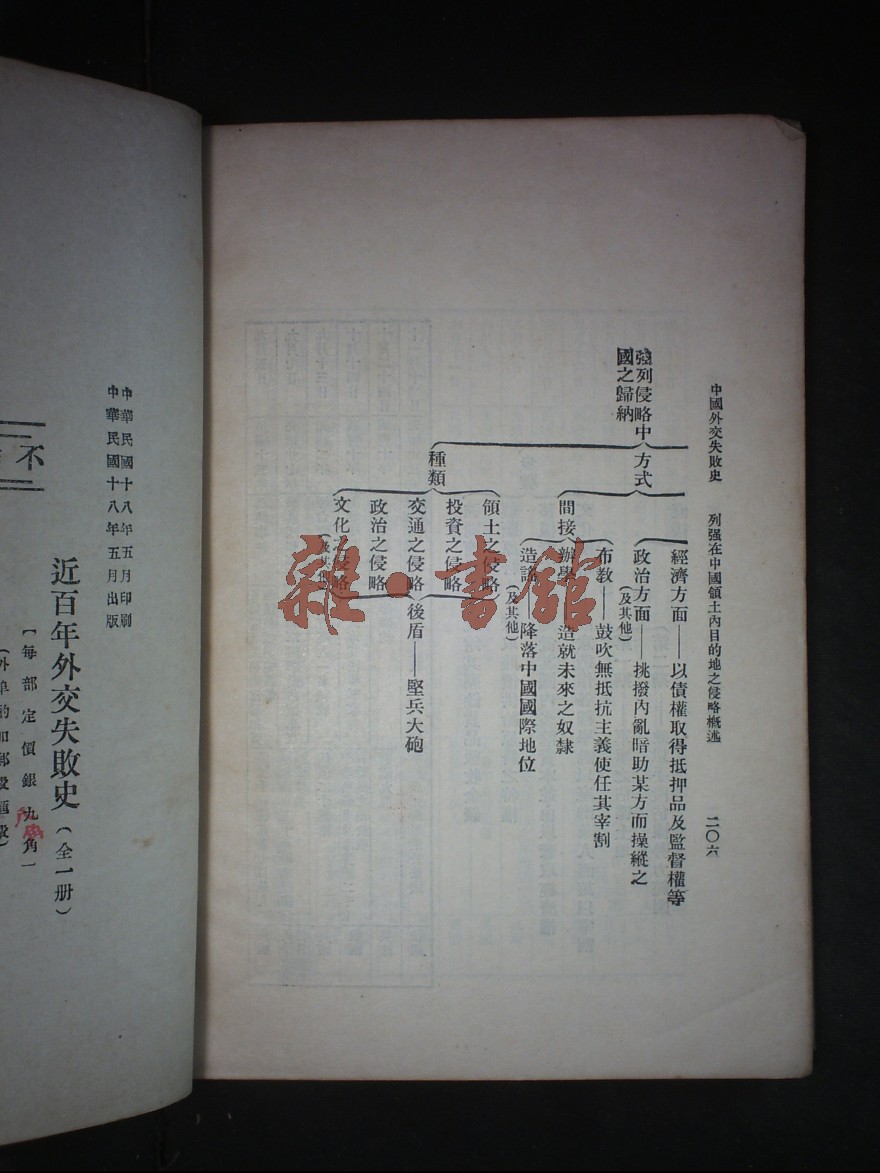 中國外交失敗史
列强在中國領土內目的地之侵略概述
二〇六
强列侵略中
國之歸納
方式
經濟方面——以債權取得抵押品及監督權等
政治方面——挑撥內亂暗助某方而操縱之
(及其他)
間接
布教——鼓吹無抵抗主義使任其宰割
辦學——造就未來之奴隸
造謠——降落中國國際地位
(及其他)
種類
領土之侵略
投資之侵略
交通之侵略
政治之侵略
文化之侵略
(及其他)
後盾——堅兵大砲
雜·書館
中華民國十八年五月印刷
中華民國十八年五月出版
近百年外交失敗史(全一册)
【每部定價銀九角】
(外埠酌加郵
不